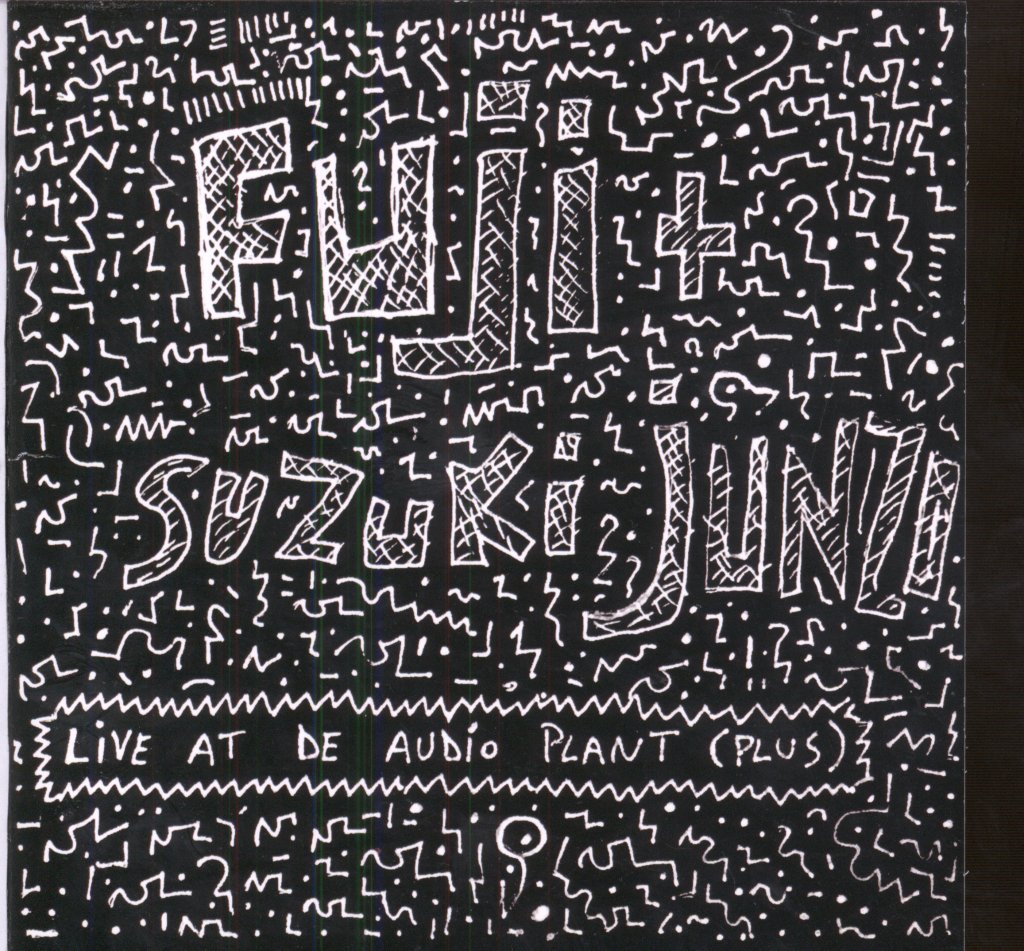 Fuji +
SUZUKi JUNZI
LiVE AT DE AUDiO PLANT (PLUS)